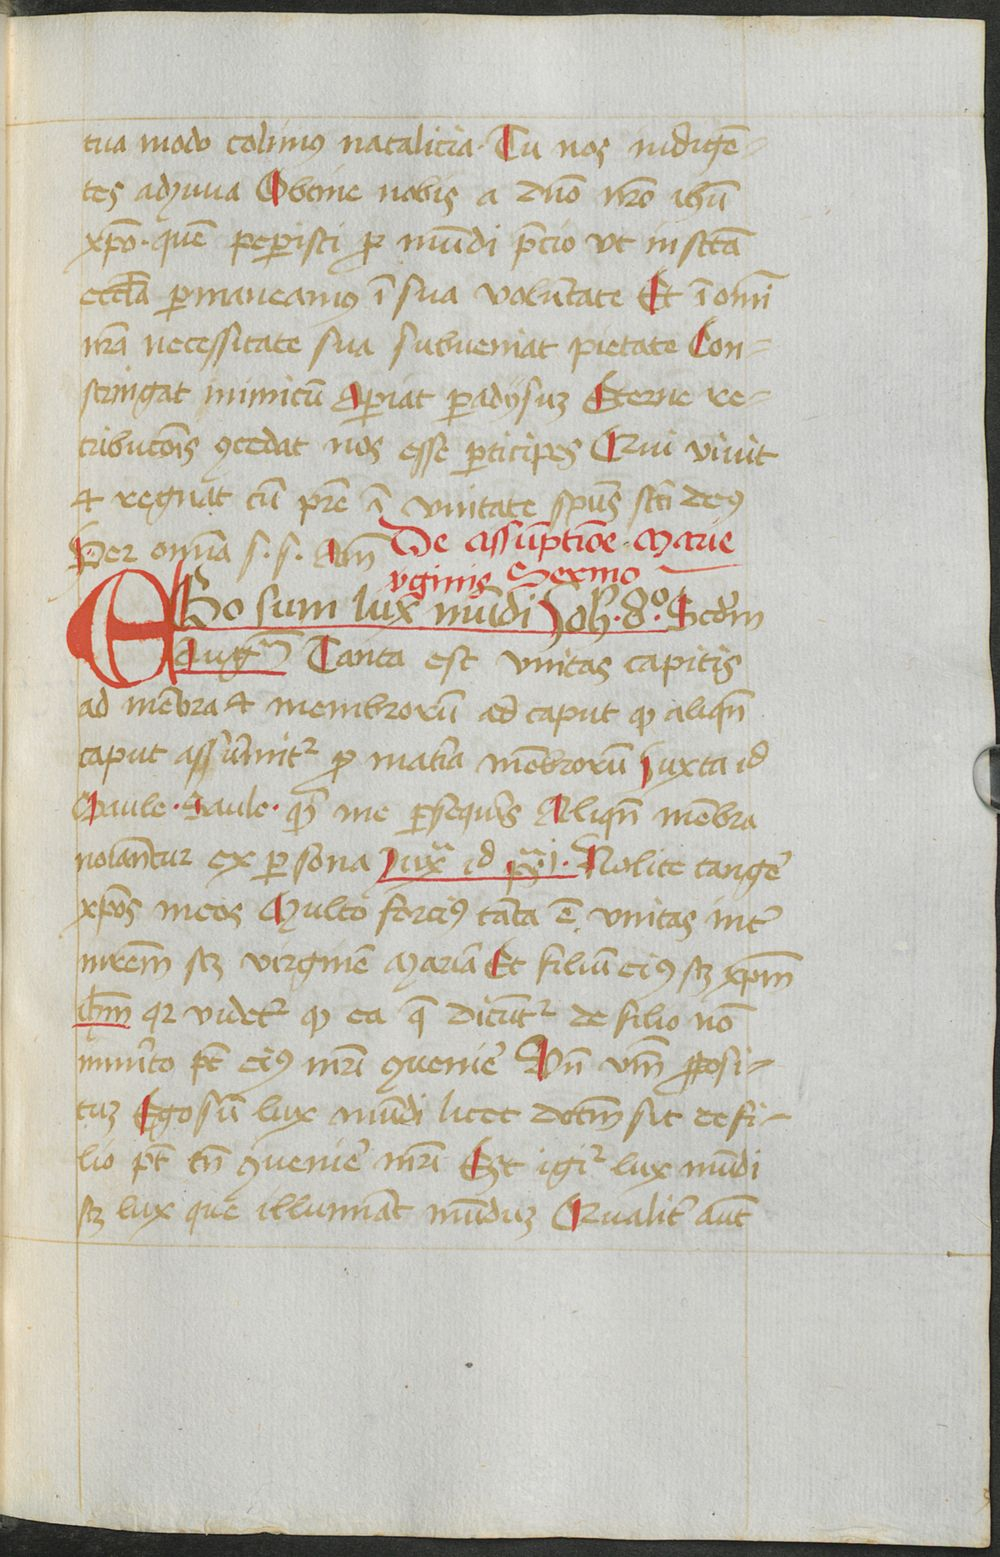 tua modo colimꝰ natalicia. Tu nos indigē-
tes adyuua Obtine nobis a dn̄o nr̄o ihū
xp̄o. quē peꝑisti ꝓ mūdi p̄cio vt in sctā
eccl̄a ꝑmaneamꝰ ī sua volūtate Et ī om̄i
nr̄a necessitate sua subueniat pietate Con-
stringat inimicū Aꝑiat ꝑadijsuꝫ Eterne re-
tribucōis ꝯcedat nos esse ꝑticipes Qui viuit
et regnat cū pr̄e ī vnitate sp̄us sc̄ti deꝰ
Per om̄ia s. s. Am̄ De assūptiōe Marie
v̓ginis Sermo
EGo sum lux mūdi Joh̄. 8º. Scd̄m
Augᵐ Tanta est vnitas capitis
ad mēbra et membrorū ad caput ꝙ aliqn̄
caput assūmit᷑ ꝓ mat̄ia mēbrorū Juxta id
Saule. Saule. qͥd me ꝑsequeris Aliqn̄ mēbra
notantur ex ꝑsona Juxᵃ id pˢᵃˡ. Nolite tange᷑
xp̄os meos Multo forciꝰ tāta ē vnitas int᷑
mr̄em sꝫ virginē Mariā Et filiū eiꝰ sꝫ xp̄m
ih̄m qꝛ videt᷑ ꝙ ea q̄ dicūt᷑ de filio nō
īmerito pt̄ eiꝰ mr̄i ꝯuenire Vn̄ vm̄ ꝓposi-
tuꝫ Ego sū lux mūdi licet dc̄m sit de fi-
lio pt̄ tn̄ ꝯuenire mr̄i Est igit᷑ lux mūdi
sꝫ lux que illumiāt mūduꝫ Qualit᷑ aūt